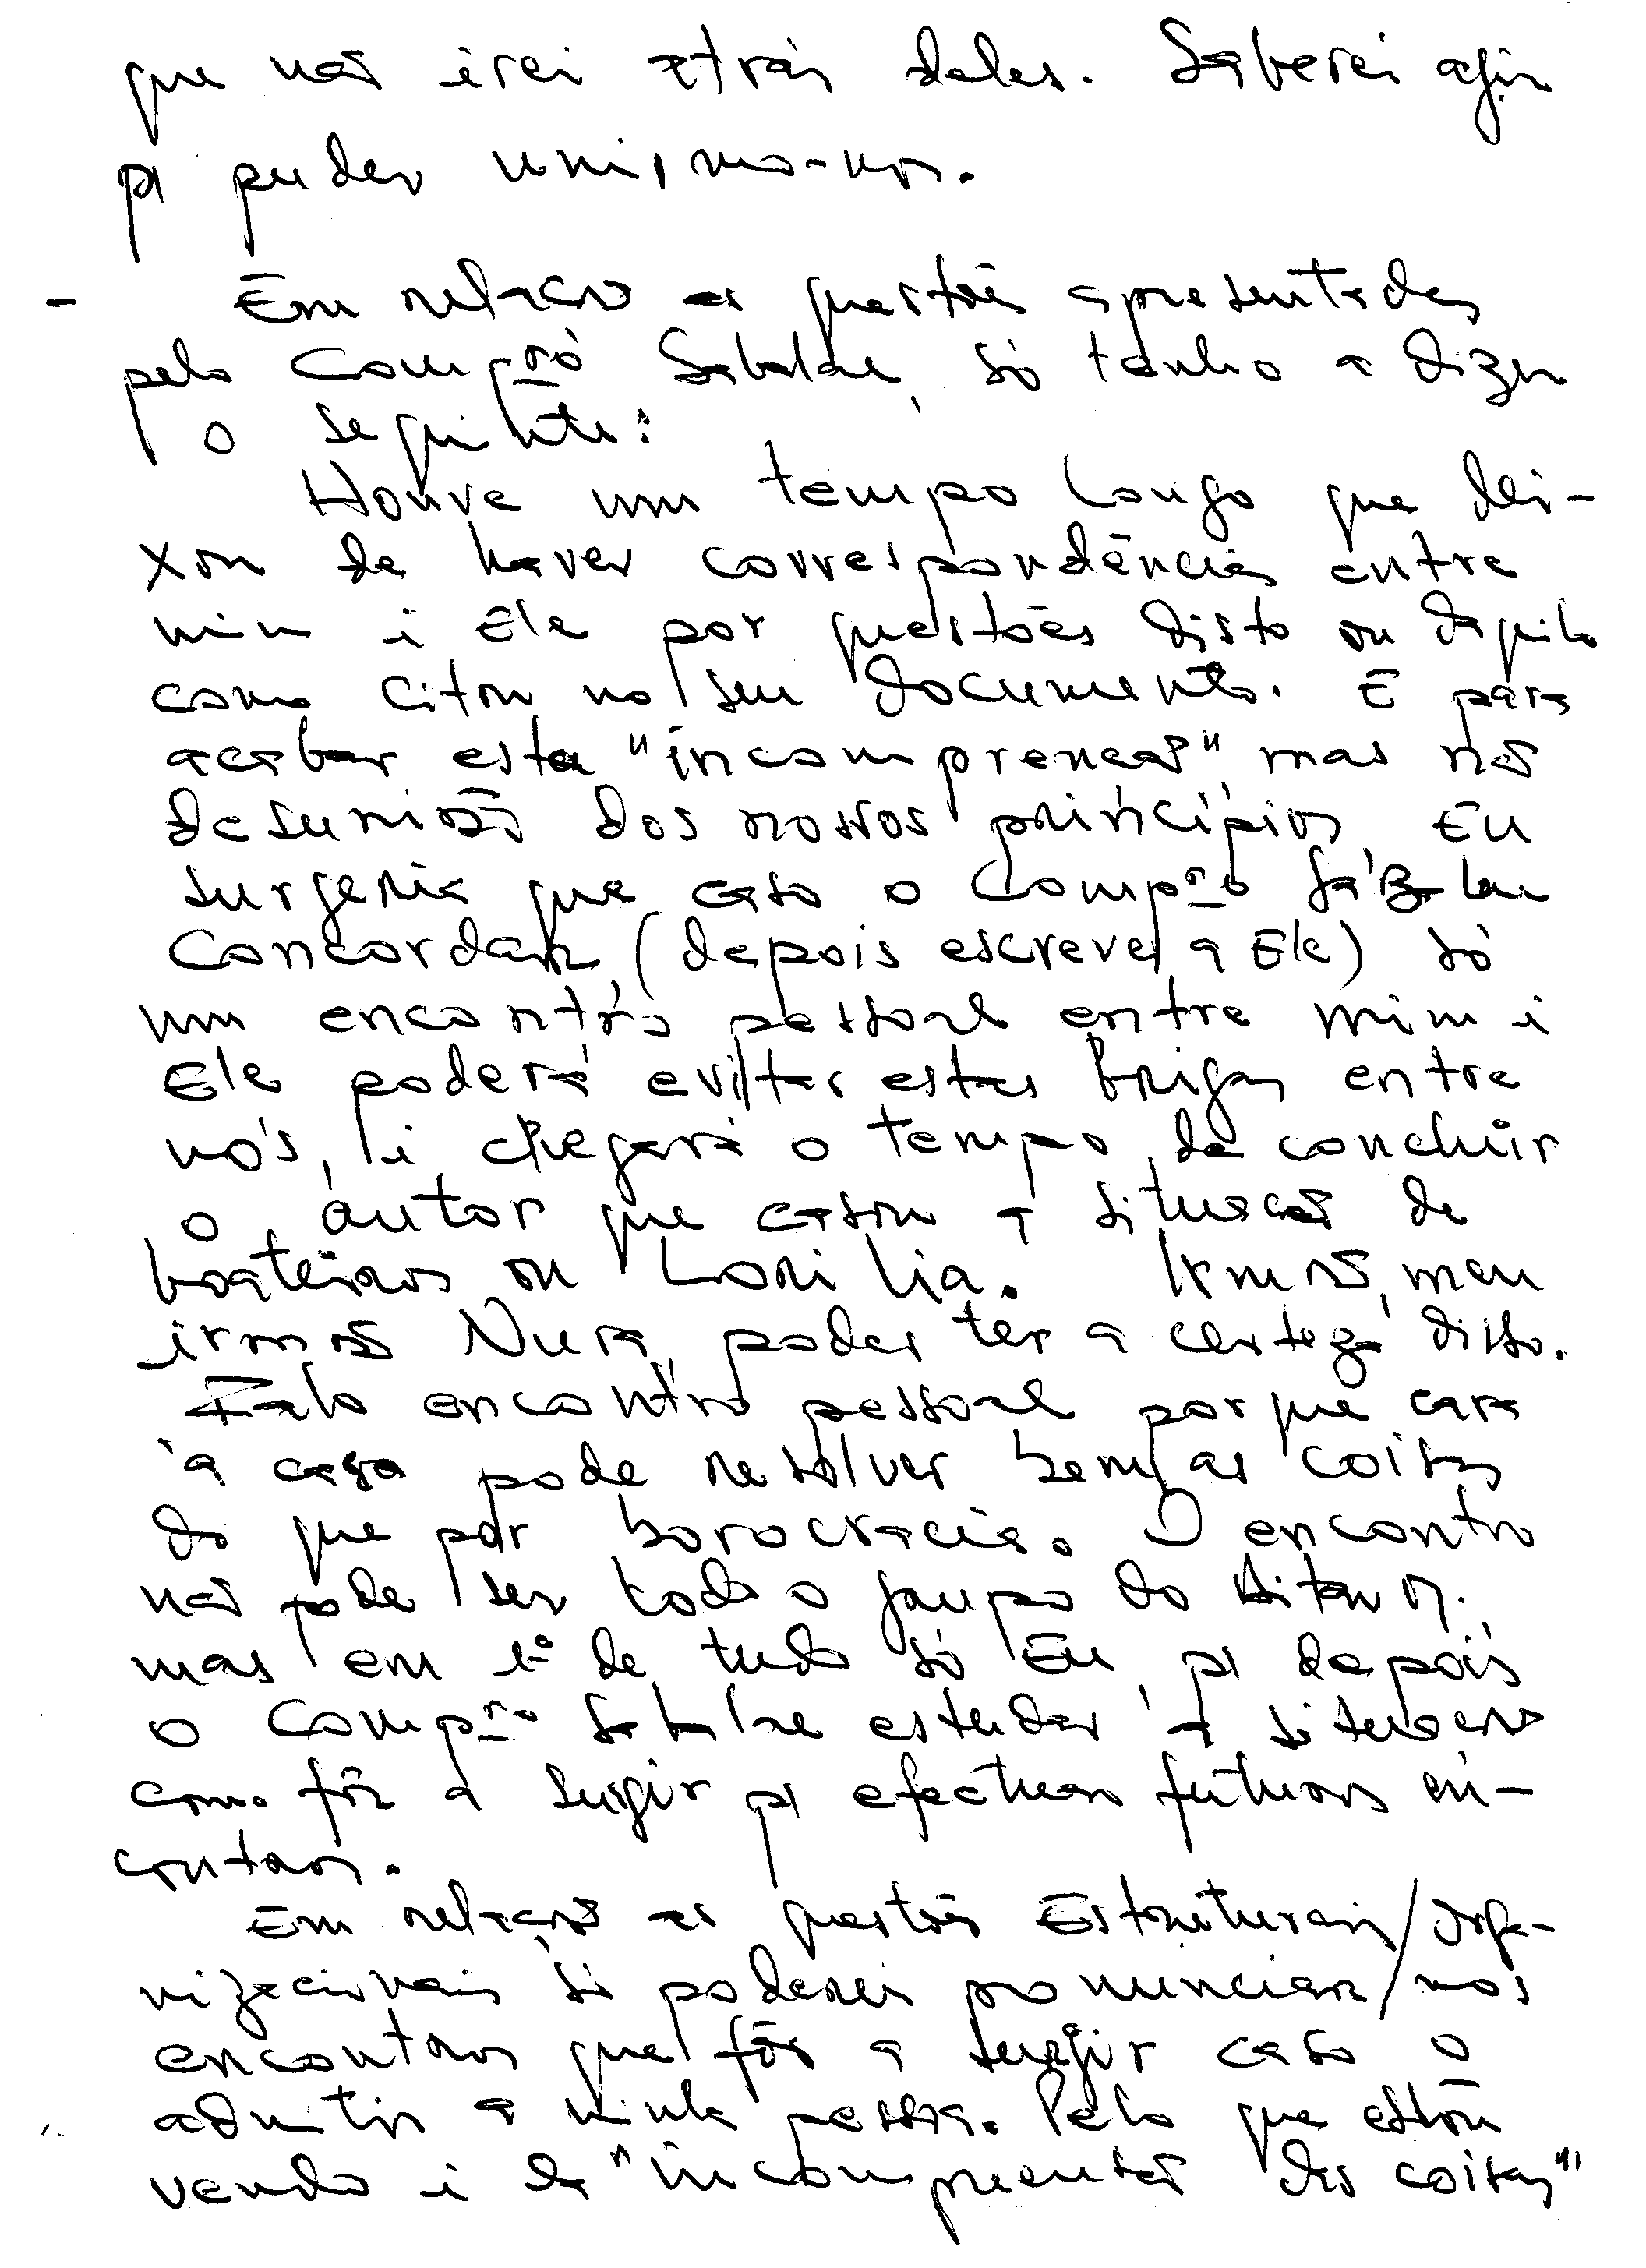 que não irei atrás deles. Saberei agir
p/ puder unirmo-nos.
- Em relação as questões apresentadas
pelo Compro Sabalae, só tenho a dizer
o seguinte:
Houve um tempo longo que dei-
xou de haver correspondências entre
mim i Ele por questões disto ou daquilo
como citou no seu documento. E para
acabar esta "incomprencão", mas não
desunião dos nossos princípios, Eu
surgeria que caso o Compro Sabalae
Concordar, (depois escrever a Ele) só
um encontro pessoal entre mim i
Ele poderá evitar estas brigas entre
nós, i chegará o tempo de concluir
o autor que causou a situacão de
boateiros ou Lorilia. Irmão, meu
irmão Nura, podes ter a certeza disso.
Falo encontro pessoal porque cara
à cara pode resolver bem as coisas
do que por borocracia. O encontro
não pode ser todo o grupo do
mas em 1º de tudo só Eu, p/ depois
o Compro Sabalae estudar a situacão
como fôr a surgir p/ efectuar futuros en-
contros.
Em relação as questões Estruturais/orga-
nizacionais só poderei pronunciar/nos
encontros que fôr a surgir caso o
admitir a minha pessoa. Pelo que estou
vendo i da "incompreensão das coisas"